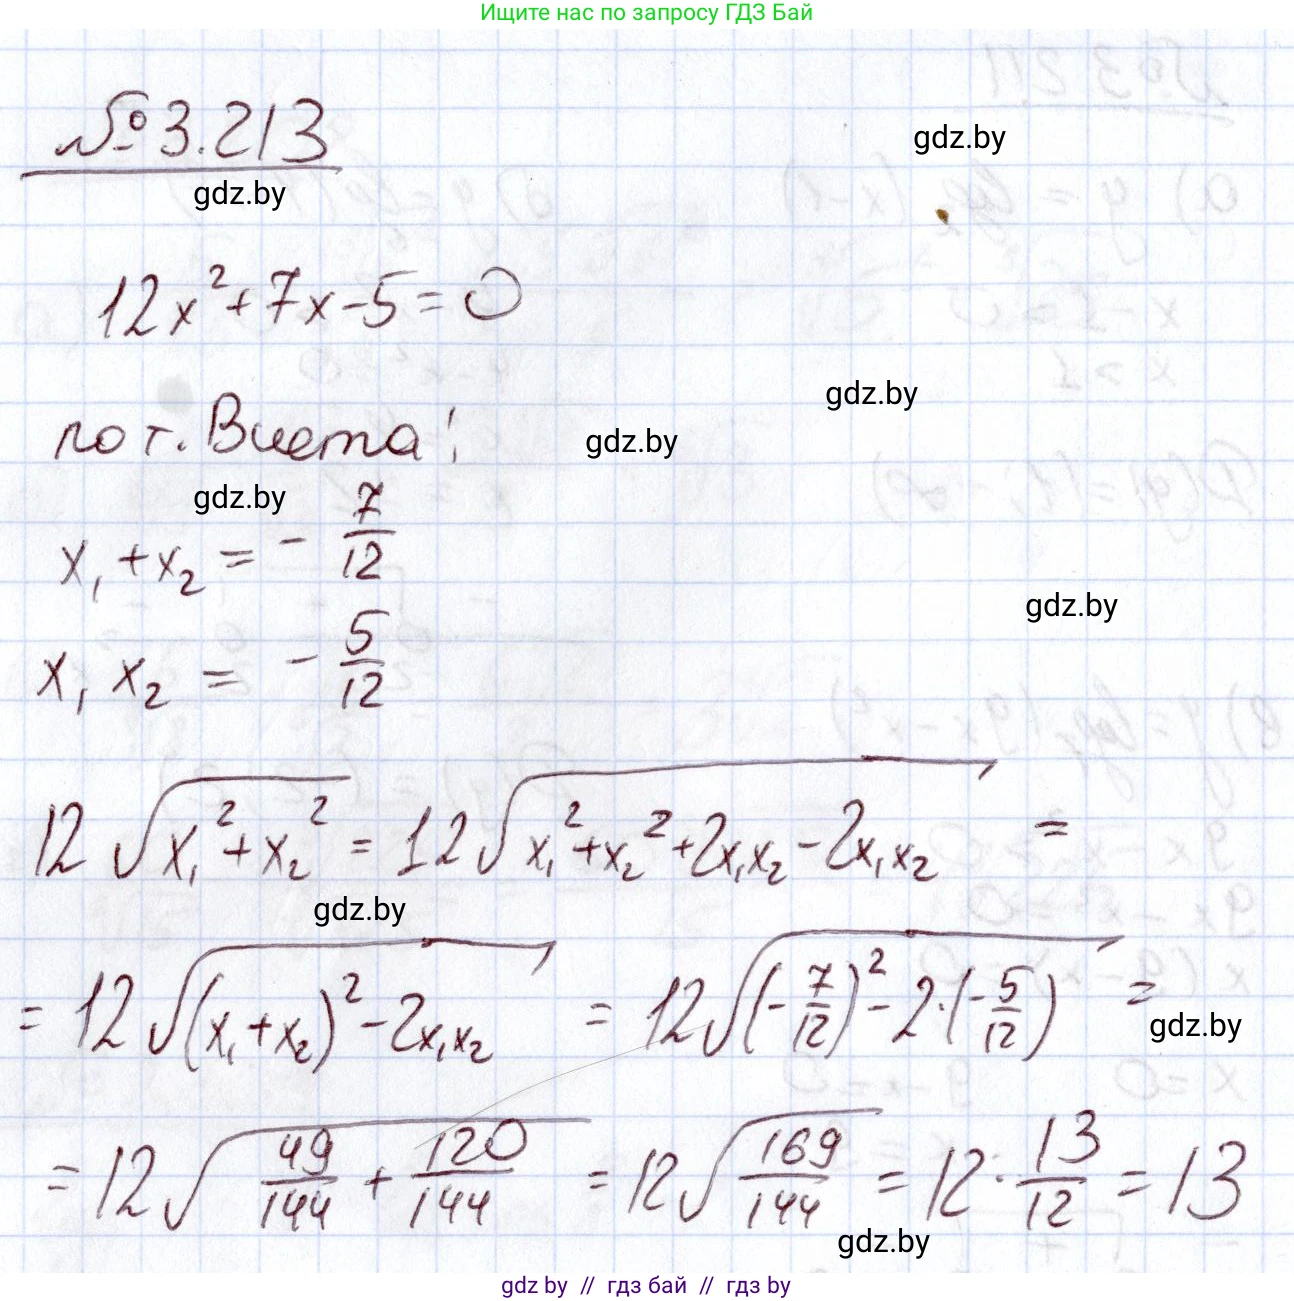 Ищите нас по запросу ГДЗ Бай
№ 3.213
gdz.by
gdz.by
12x² + 7x - 5 = 0
gdz.by
по т. Виета:
gdz.by
gdz.by
x₁ + x₂ = - 7/12
gdz.by
x₁ x₂ = - 5/12
12√(x₁² + x₂²) = 12√(x₁² + x₂² + 2x₁x₂ - 2x₁x₂) =
gdz.by
= 12√((x₁ + x₂)² - 2x₁x₂) = 12√((-7/12)² - 2·(-5/12)) =
gdz.by
= 12√(49/144 + 120/144) = 12√(169/144) = 12 · 13/12 = 13
gdz.by
gdz by // гдз бай // гдз by